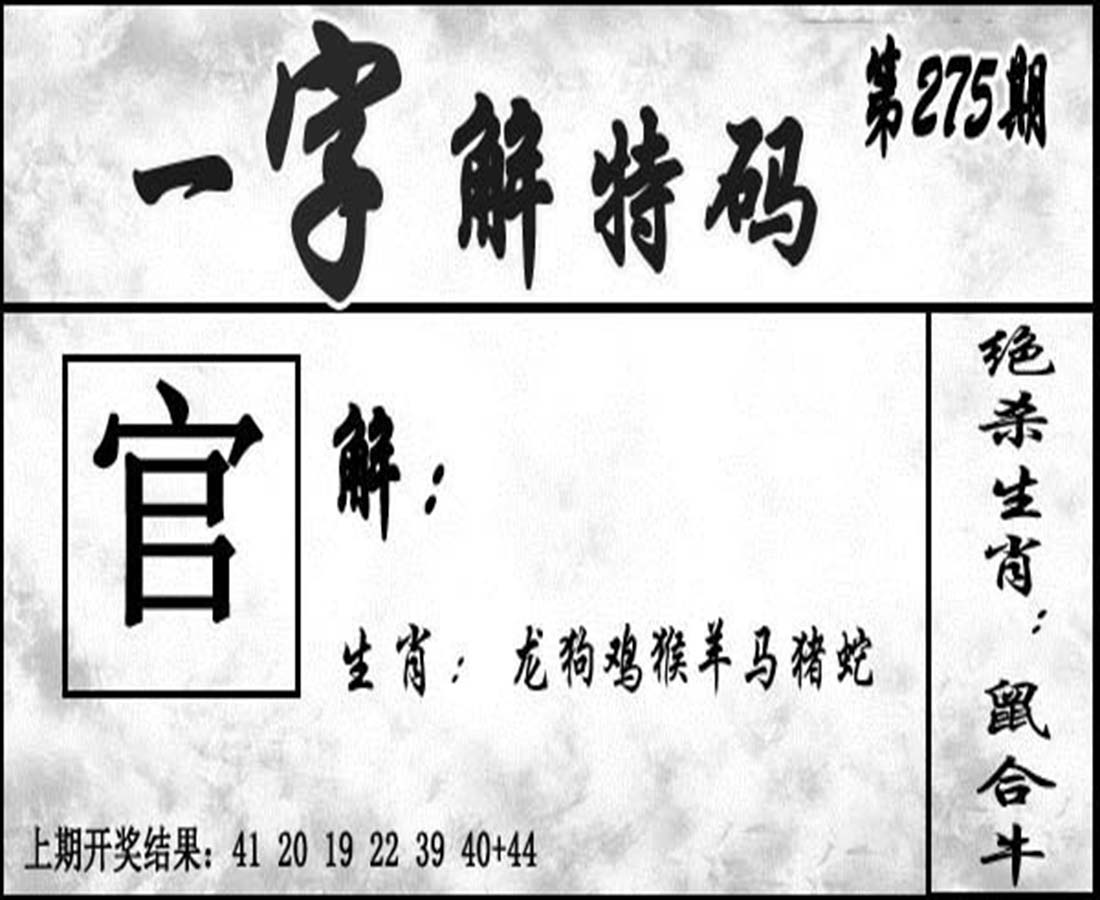 一字解特码
第275期
官
解：
生肖：龙狗鸡猴羊马猪蛇
上期开奖结果：41 20 19 22 39 40+44
绝杀生肖：鼠合牛